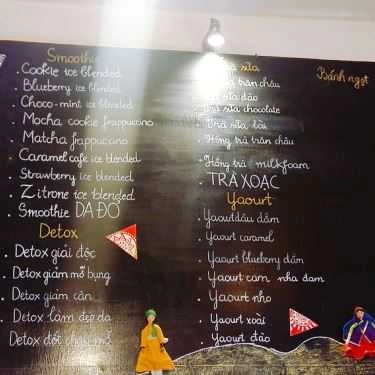 Smoothie
. Cookie ice blended
. Blueberry ice blended
. Choco-mint ice blended
. Mocha cookie frappucino
. Matcha frappucino
. Caramel cafe ice blended
. Strawberry ice blended
. Zitrone ice blended
. Smoothie DA ĐỎ
Detox
. Detox giải độc
. Detox giảm mỡ bụng
. Detox giảm cân
. Detox làm đẹp da
Detox đốt cháy mỡ
Trà sữa
trân châu
sữa dâu
sữa chocolate
Trà sữa
. Hồng trà trân châu
. Hồng trà milkfoam
. TRÀ XOẠC
Yaourt
. Yaourt dâu dầm
. Yaourt caramel
. Yaourt blueberry dầm
. Yaourt cam nha đam
. Yaourt nho
. Yaourt xoài
. Yaourt đào
Bánh ngọt